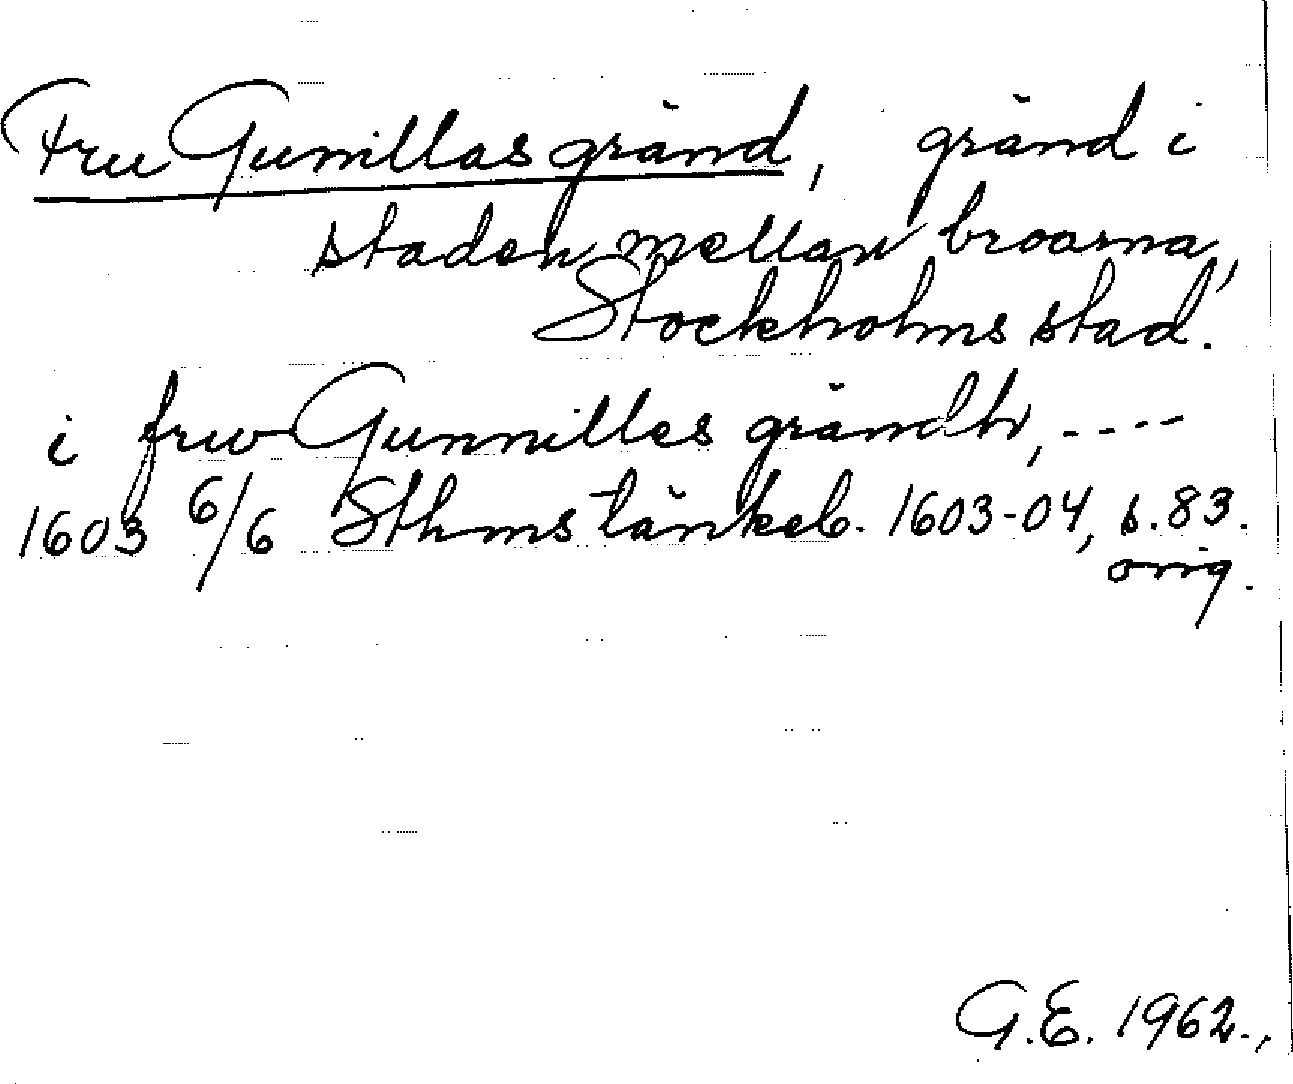 Fru Gunillas gränd, gränd i
staden mellan broarna,
Stockholms stad.
i frw Gunnilles grändh, ----
1603 6/6 Sthms tänkeb. 1603-04, s. 83.
orig.
G.E. 1962.